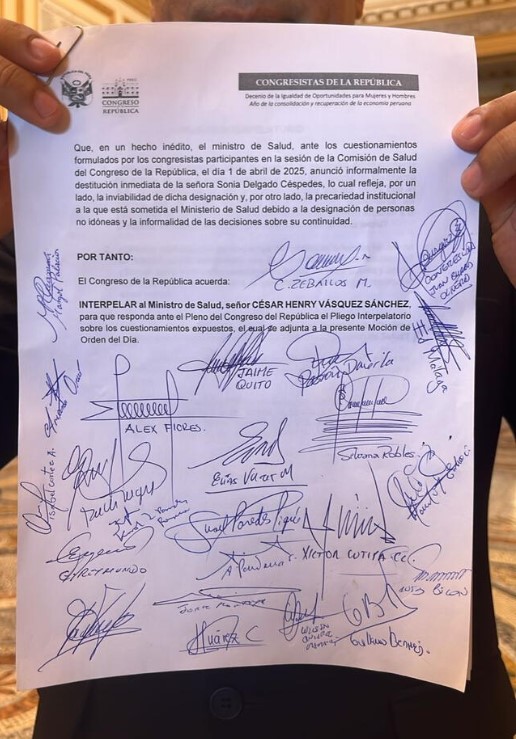 CONGRESO
REPÚBLICA
CONGRESISTAS DE LA REPÚBLICA
Decenio de la Igualdad de Oportunidades para Mujeres y Hombres
Año de la consolidación y recuperación de la economía peruana
Que, en un hecho inédito, el ministro de Salud, ante los cuestionamientos
formulados por los congresistas participantes en la sesión de la Comisión de Salud
del Congreso de la República, el día 1 de abril de 2025, anunció informalmente la
destitución inmediata de la señora Sonia Delgado Céspedes, lo cual refleja, por un
lado, la inviabilidad de dicha designación y, por otro lado, la precariedad institucional
a la que está sometida el Ministerio de Salud debido a la designación de personas
no idóneas y la informalidad de las decisiones sobre su continuidad.
POR TANTO:
El Congreso de la República acuerda:
C. ZEBALLOS M.
INTERPELAR al Ministro de Salud, señor CÉSAR HENRY VÁSQUEZ SÁNCHEZ,
para que responda ante el Pleno del Congreso de la República el Pliego Interpelatorio
sobre los cuestionamientos expuestos, el cual se adjunta a la presente Moción de
Orden del Día.
Ed Málaga
JAIME
QUITO
Pasión Davila
ALEX FLORES.
Silvana Robles
Elías Varas M
Isabel Cortez A.
Juan Paredes Piqué
VICTOR CUTIPA CC.
Luis
Huáraz C